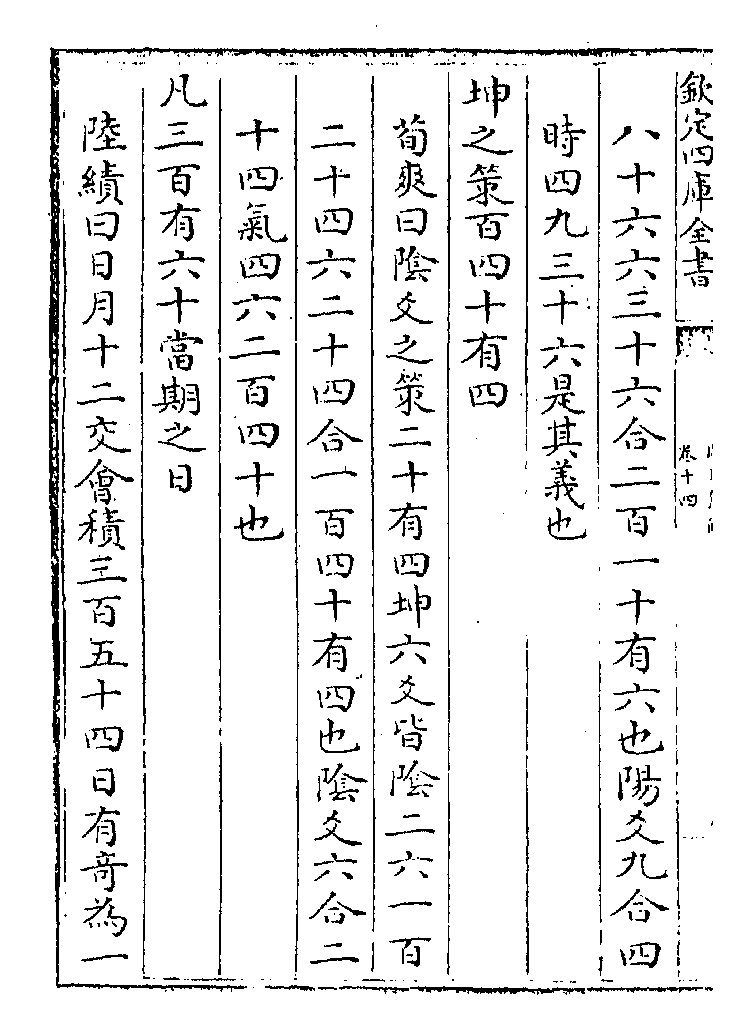 欽定四庫全書
卷十四
八十六六三十六合二百一十有六也陽爻九合四
時四九三十六是其義也
坤之策百四十有四
荀爽曰陰爻之策二十有四坤六爻皆陰二六一百
二十四六二十四合一百四十有四也陰爻六合二
十四氣四六二百四十也
凡三百有六十當期之日
陸績曰日月十二交會積三百五十四日有竒為一